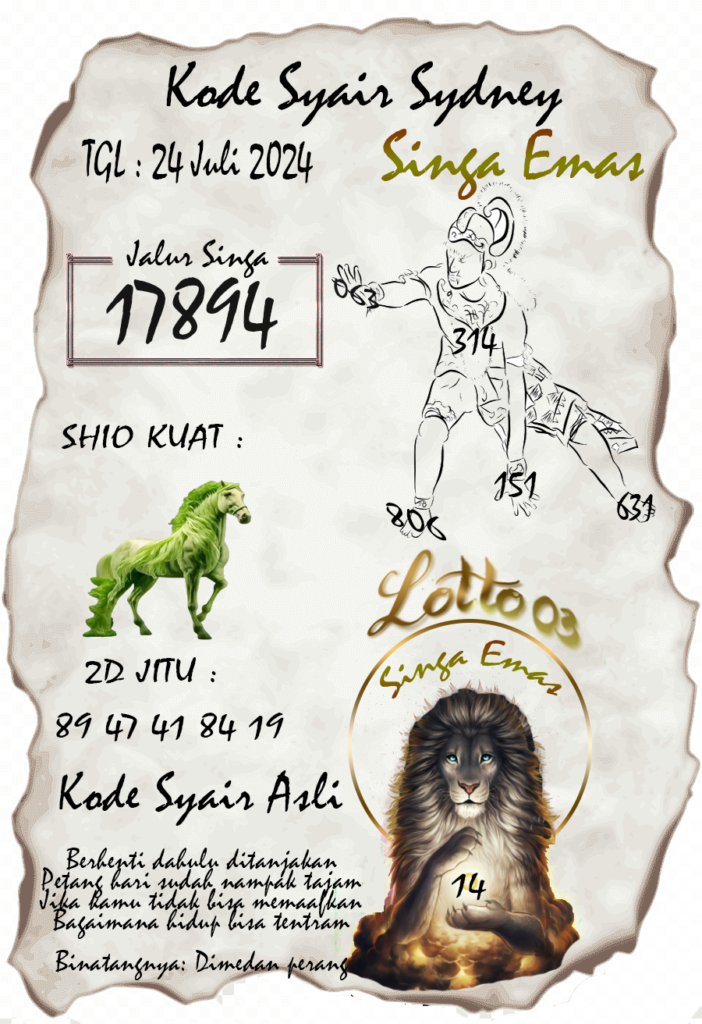 Kode Syair Sydney
TGL : 24 Juli 2024
Singa Emas
Jalur Singa
17894
063
314
SHIO KUAT :
151
806
631
Lotto 03
Singa Emas
2D JITU :
89 47 41 84 19
Kode Syair Asli
Berhenti dahulu ditanjakan
Petang hari sudah nampak tajam
Jika kamu tidak bisa memaafkan
Bagaimana hidup bisa tentram
14
Binatangnya: Dimedan perang